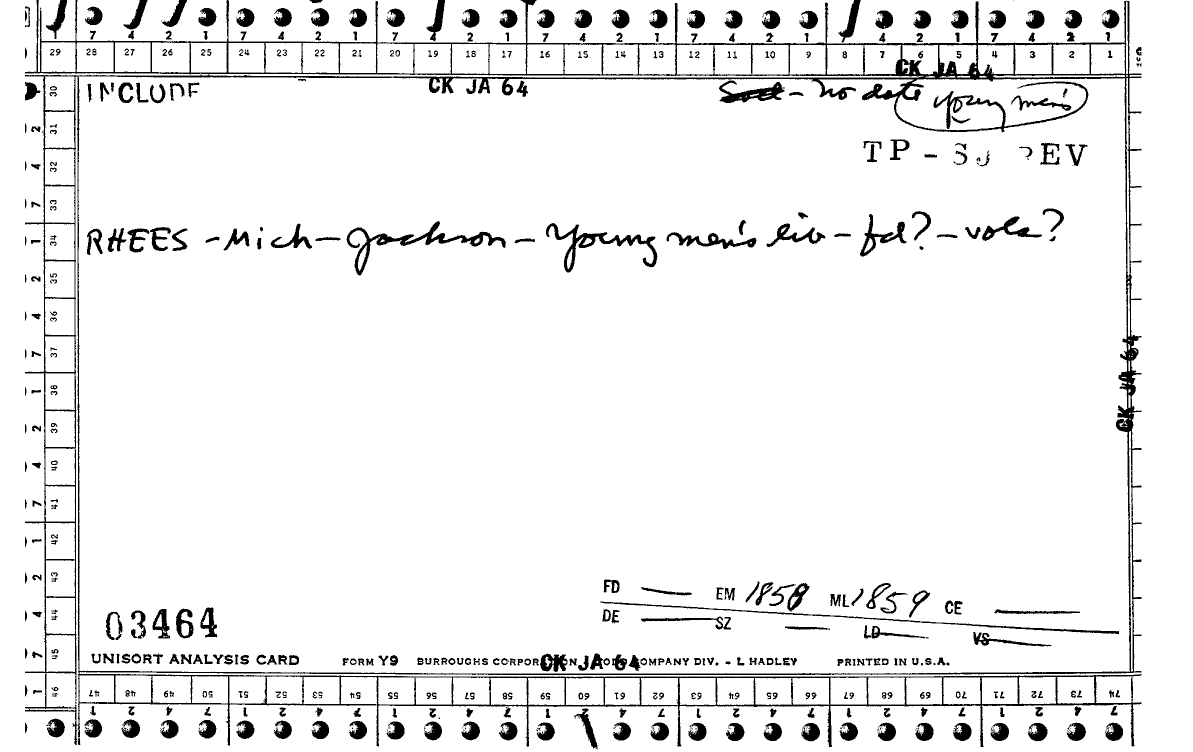 7 4 2 1 7 4 2 1 7 4 2 1 7 4 2 1 7 4 2 1 7 4 2 1 7 4 2 1
29 28 27 26 25 24 23 22 21 20 19 18 17 16 15 14 13 12 11 10 9 8 7 6 5 4 3 2 1
CK JA 64
INCLUDE CK JA 64 - no date young men's
TP - REV
RHEES - Mich - Jackson - Young men's lib - fd? - vols?
30
31
32
33
34
35
36
37
38
39
40
41
42
43
44
45
46
CK JA 64
FD — EM 1858 ML 1859 CE —
DE — SZ — LD — VS —
03464
UNISORT ANALYSIS CARD FORM Y9 BURROUGHS CORPORATION - TODD COMPANY DIV. - L HADLEY PRINTED IN U.S.A.
CK JA 64
47 48 49 50 51 52 53 54 55 56 57 58 59 60 61 62 63 64 65 66 67 68 69 70 71 72 73 74
1 2 4 7 1 2 4 7 1 2 4 7 1 2 4 7 1 2 4 7 1 2 4 7 1 2 4 7